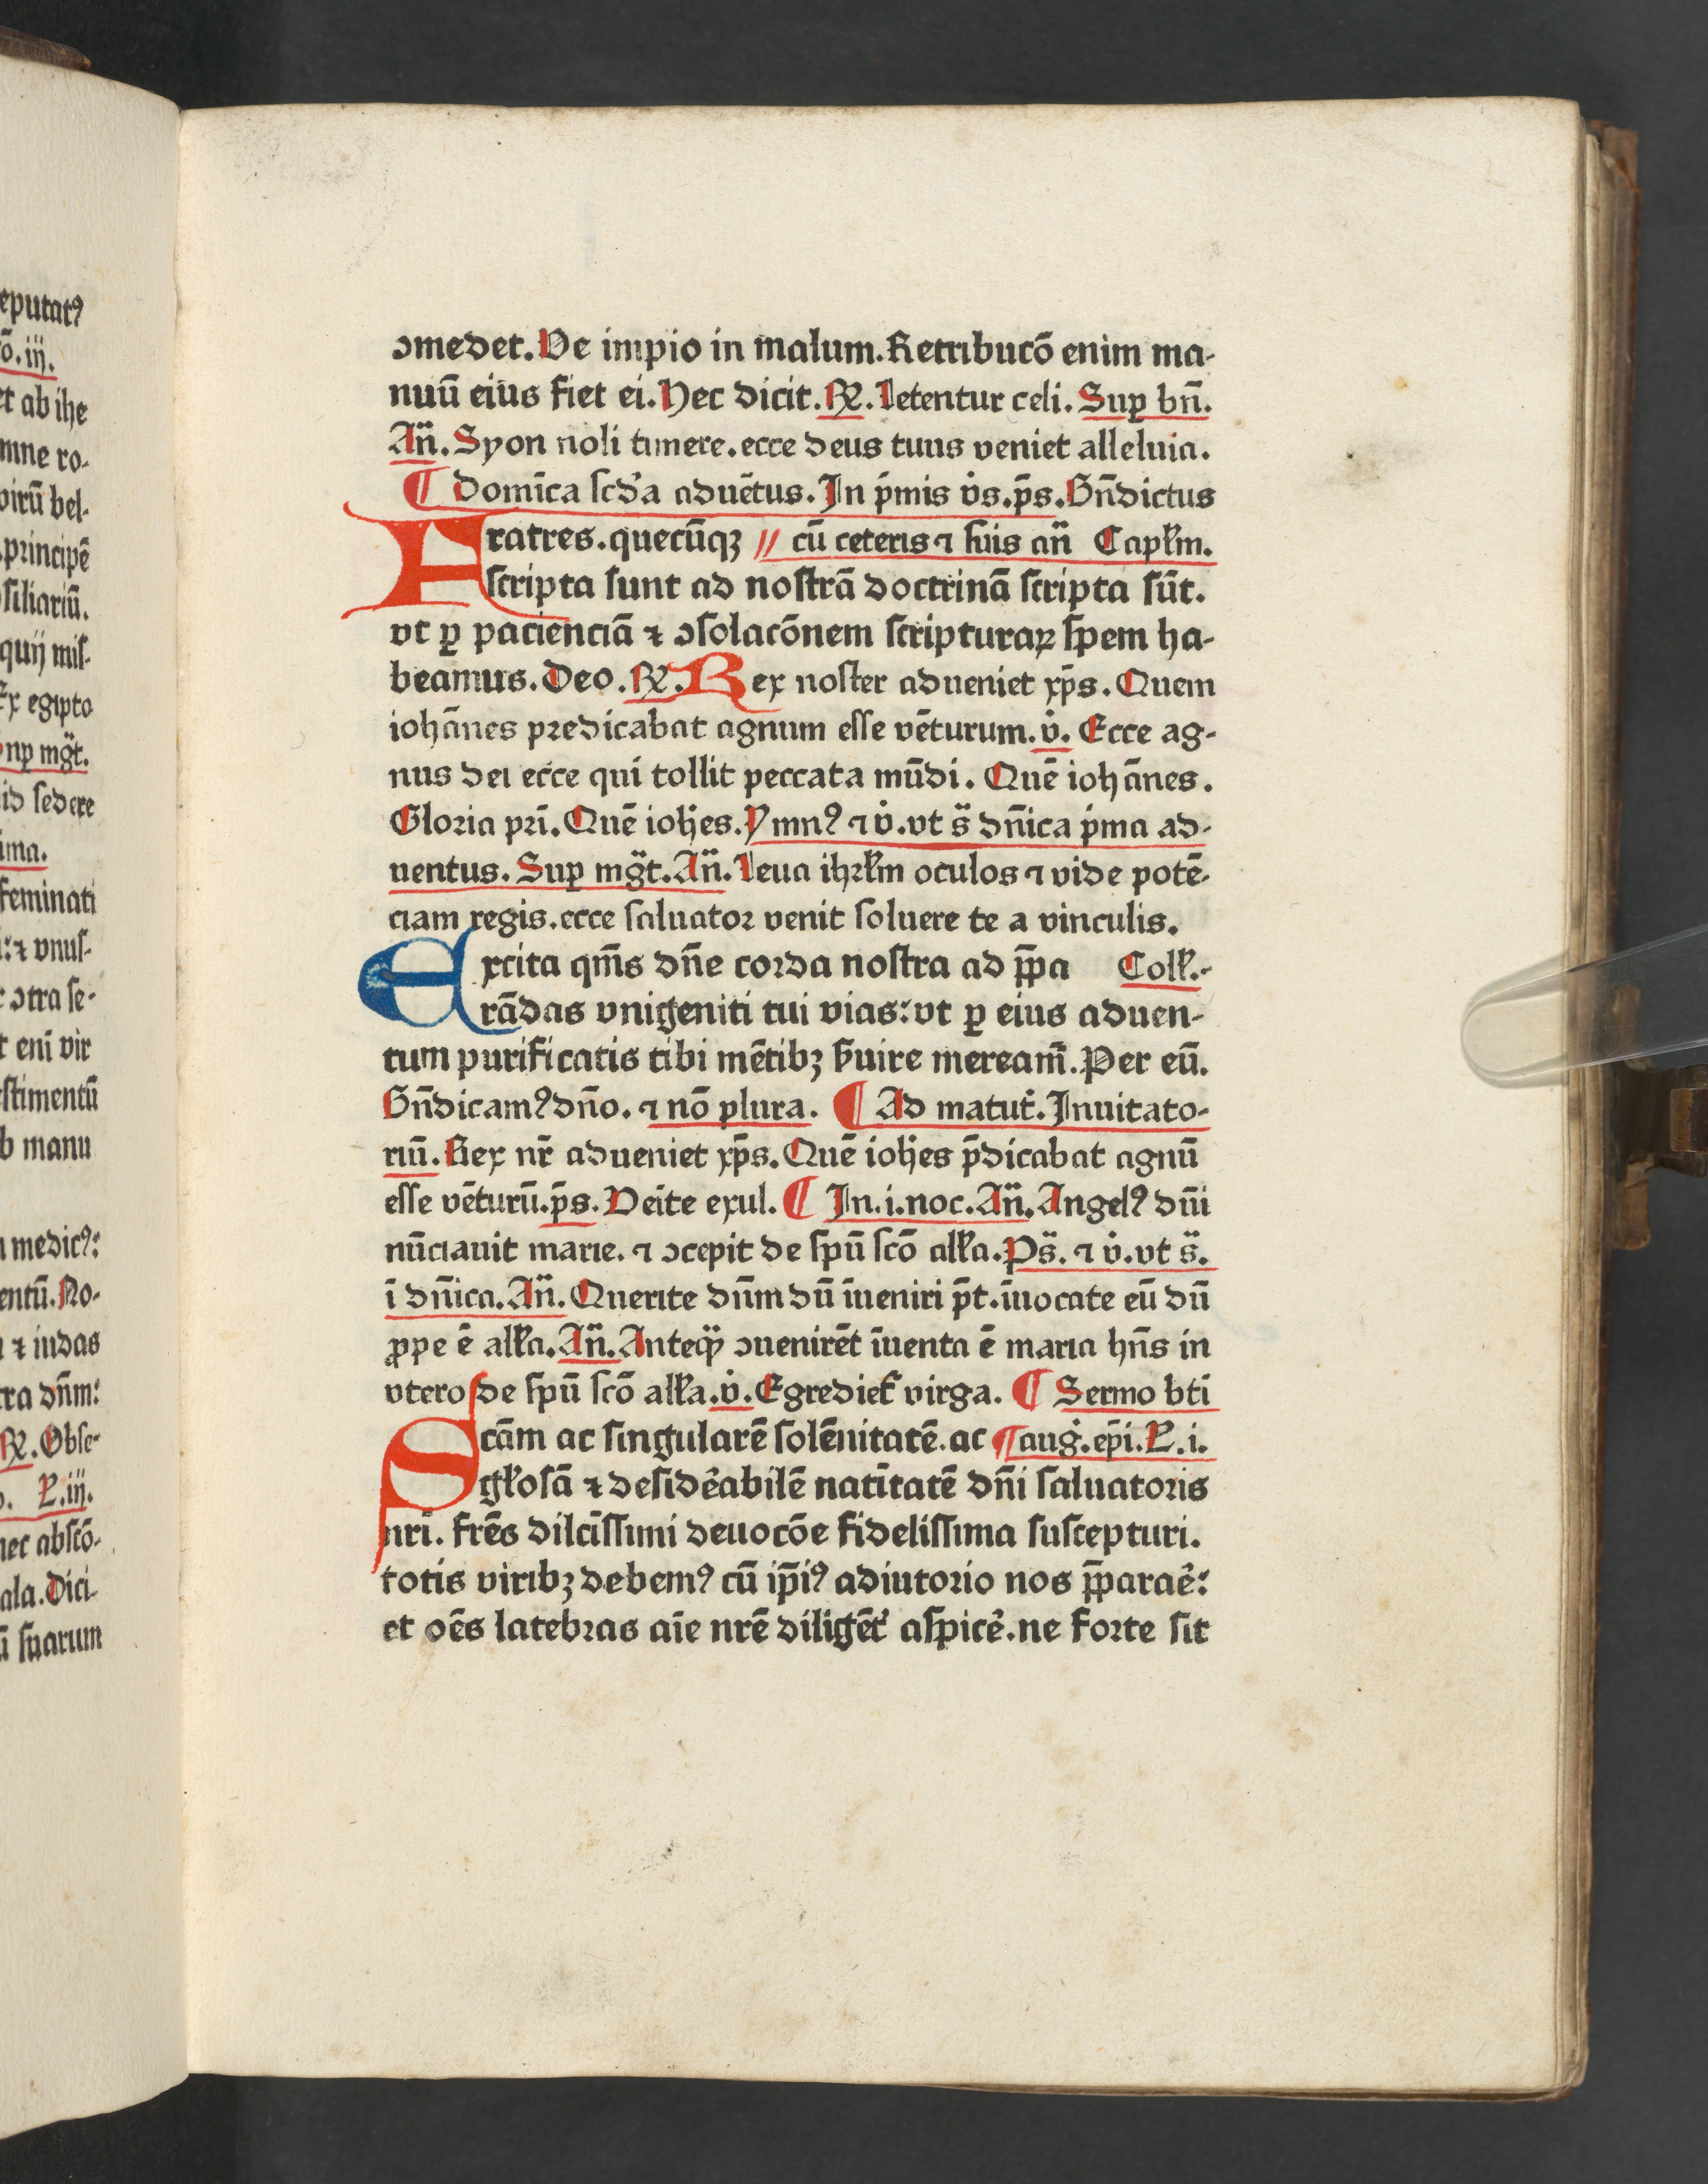 eputatꝰ
o. iij.
et ab ihe
mne ro-
virū bel-
principē
siliariū.
quij mis-
Ex egipto
np mgt̄.
id sedere
ima.
feminati
: ⁊ vnus-
ↄtra se-
t eni vir
stimentū
b manu
medicꝰ:
entū. No-
⁊ iudas
tra dn̄m:
℟. Obse-
L. iij.
nec abscō-
ala. Dici-
suarum
ↄmedet. Ve impio in malum. Retribucō enim ma-
nuū eius fiet ei. Hec dicit. ℟. Letentur celi. Suꝑ bn̄.
An̄. Syon noli timere. ecce deus tuus veniet alleluia.
¶ Domīca scd'a aduētus. In p̄mis v̇s. p̄s. Bn̄dictus
Fratres. quecūqꝫ // cū ceteris ⁊ suis an̄ Capłm.
scripta sunt ad nostrā doctrinā scripta sūt.
vt ꝑ pacienciā ⁊ ↄsolacōnem scripturaꝝ spem ha-
beamus. Deo. ℟. Rex noster adueniet xp̄s. Quem
iohānes predicabat agnum esse vēturum. v̇. Ecce ag-
nus dei ecce qui tollit peccata mūdi. Quē iohānes.
Gloria pr̄i. Quē ioh̄es. Ymnꝰ ⁊ v̇. vt s̄ dn̄ica p̄ma ad-
uentus. Suꝑ mgt̄. An̄. Leua ihrłm oculos ⁊ vide potē-
ciam regis. ecce saluator venit soluere te a vinculis.
Excita qm̄s dn̄e corda nostra ad p̄pa Coll̄.-
rādas vnigeniti tui vias: vt ꝑ eius aduen-
tum purificatis tibi mētibꝫ s̄uire meream̄. Per eū.
Bn̄dicamꝰ dn̄o. ⁊ nō plura. ¶ Ad matut̄. Inuitato-
riū. Rex nr̄ adueniet xp̄s. Quē ioh̄es p̄dicabat agnū
esse vēturū. p̄s. Veīte exul. ¶ In. i. noc. An̄. Angelꝰ dn̄i
nūciauit marie. ⁊ ↄcepit de spū scō alła. Ps̄. ⁊ v̇. vt s̄.
ī dn̄ica. An̄. Querite dn̄m dū īueniri p̄t. īuocate eū dū
ꝓpe ē alła. An̄. Anteqꝫ ↄuenirēt īuenta ē maria hn̄s in
vtero de spū scō alła. v̇. Egrediet̄ virga. ¶ Sermo bti
Scām ac singularē solēnitatē. ac ¶ auġ. ep̄i. L. i.
głosā ⁊ desid'abilē natītatē dn̄i saluatoris
nr̄i. frēs dilcīssimi deuocōe fidelissima suscepturi.
totis viribꝫ debemꝰ cū ip̄iꝰ adiutorio nos p̄parae̓:
et oēs latebras aīe nrē diligēt̓ aspice̓. ne forte sit